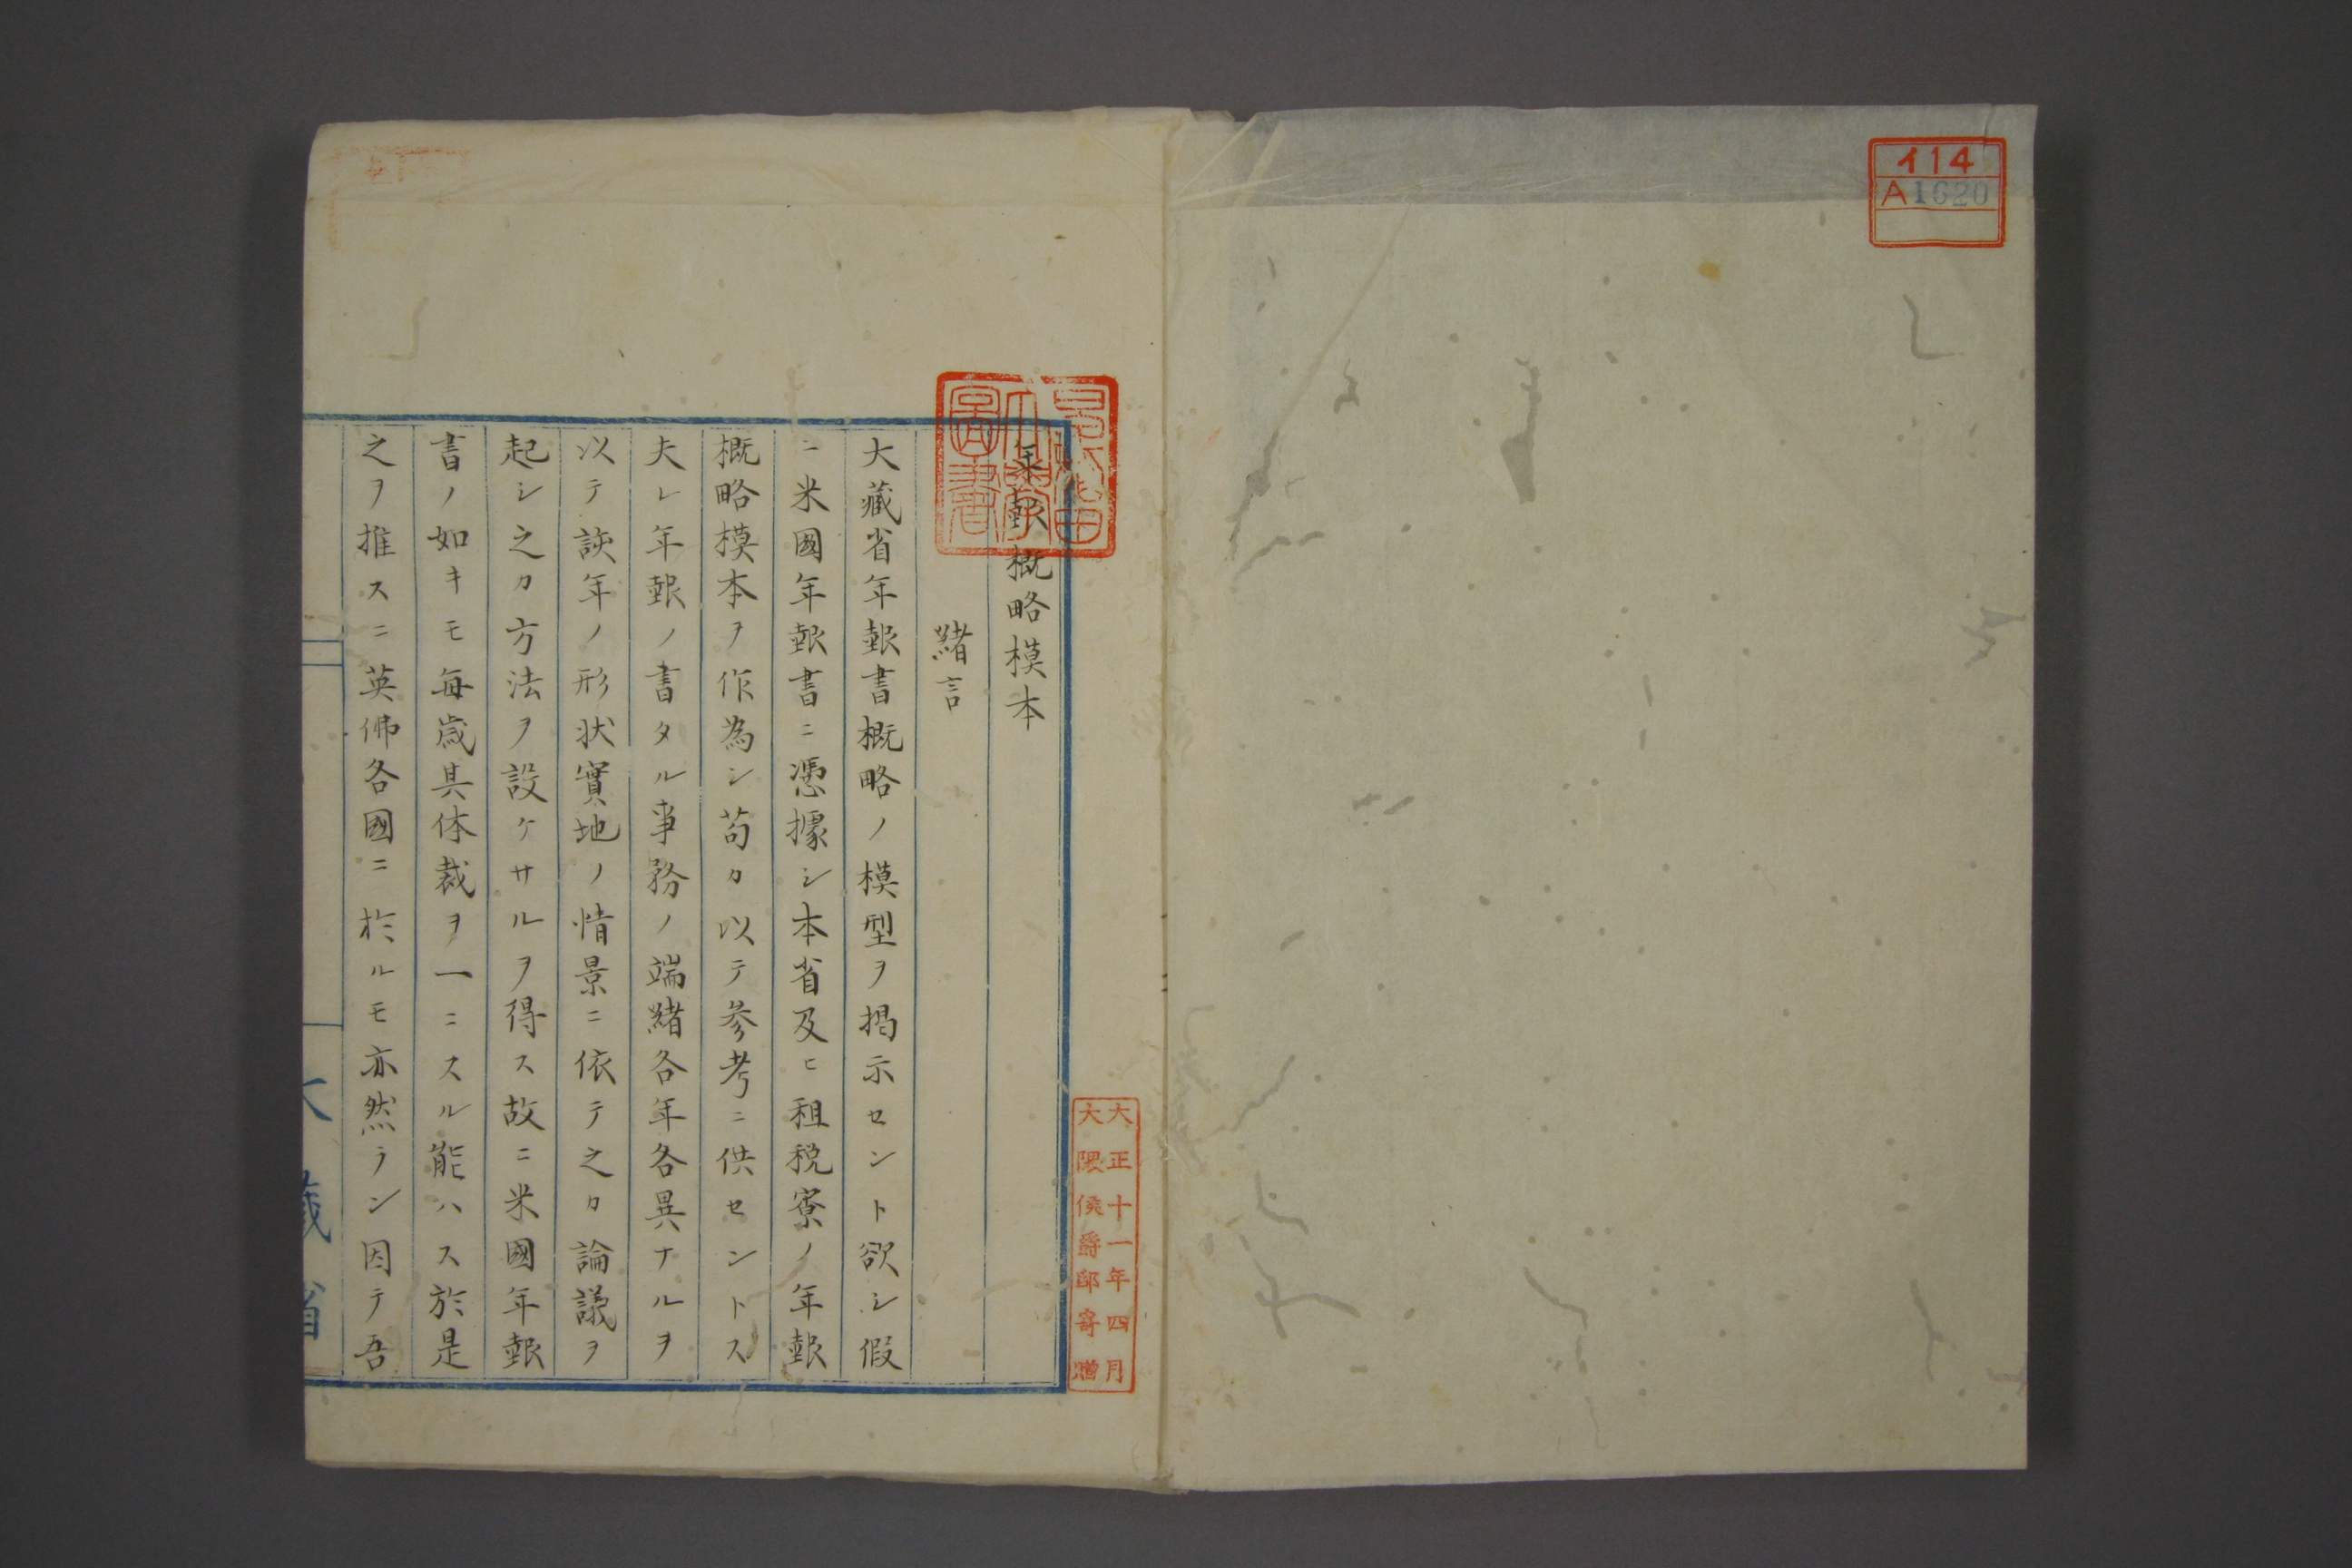 イ14
A1620
早稲田
大學
圖書
大正十一年四月
大隈侯爵邸寄贈
年報概略模本
緒言
大藏省年報書概略ノ模型ヲ掲示セント欲シ假
ニ米國年報書ニ憑據シ本省及ヒ租税寮ノ年報
概略模本ヲ作為シ苟カ以テ参考ニ供セントス
夫レ年報ノ書タル事務ノ端緒各年各異ナルヲ
以テ該年ノ形状實地ノ情景ニ依テ之カ論議ヲ
起シ之カ方法ヲ設ケサルヲ得ス故ニ米國年報
書ノ如キモ毎歳其体裁ヲ一ニスル能ハス於是
之ヲ推スニ英佛各國ニ於ルモ亦然ラン因テ吾
大藏省